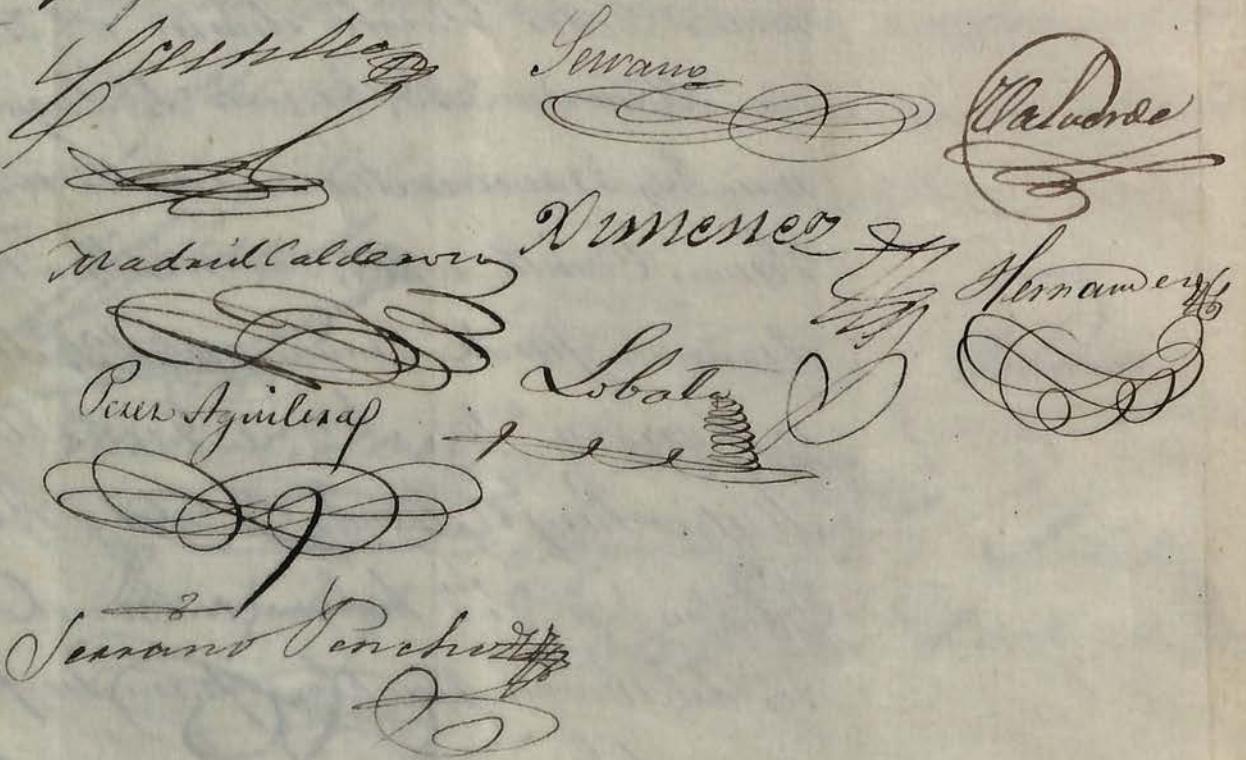 Castillo
Serrano
Valverde
Madrid Calderon
Ximenez
Hernandez
Lobato
Perez Aguilera
Serrano Sanchez